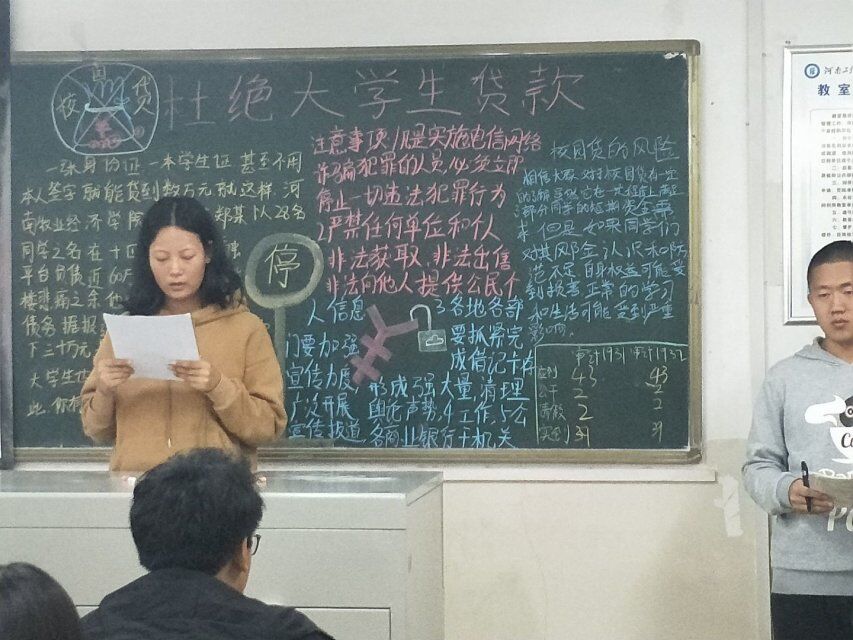 校园贷
杜绝大学生贷款
一张身份证 一本学生证 甚至不用
本人签字就能贷到数万元就这样 河
南牧业经济学院
郑某以28名
同学之名在十四
平台负债近60
楼悲痛之余他
债务据报
下三十万元
大学生
此
停
注意事项 1.凡是实施电信网络
诈骗犯罪的人员,必须立即
停止一切违法犯罪行为
2.严禁任何单位和个人
非法获取、非法出售
非法向他人提供公民个
人信息 3.各地各部
门要加强 要抓紧完
宣传力度, 形成强大量,清理
广泛开展 舆论声势,4.工作,5.公
宣传报道, 各商业银行 机关
校园贷的风险
相信大家对校园贷有一定
的了解
部分同学的短期资金需
求 但是 如果同学们
对其风险金认识和防
范不足 自身权益可能受
到损害 正常的学习
和生活可能受到严重
影响
审计1931 审计1932
应到 43 43
公干 2 2
请假 2 2
实到 39 39
河南工
教室